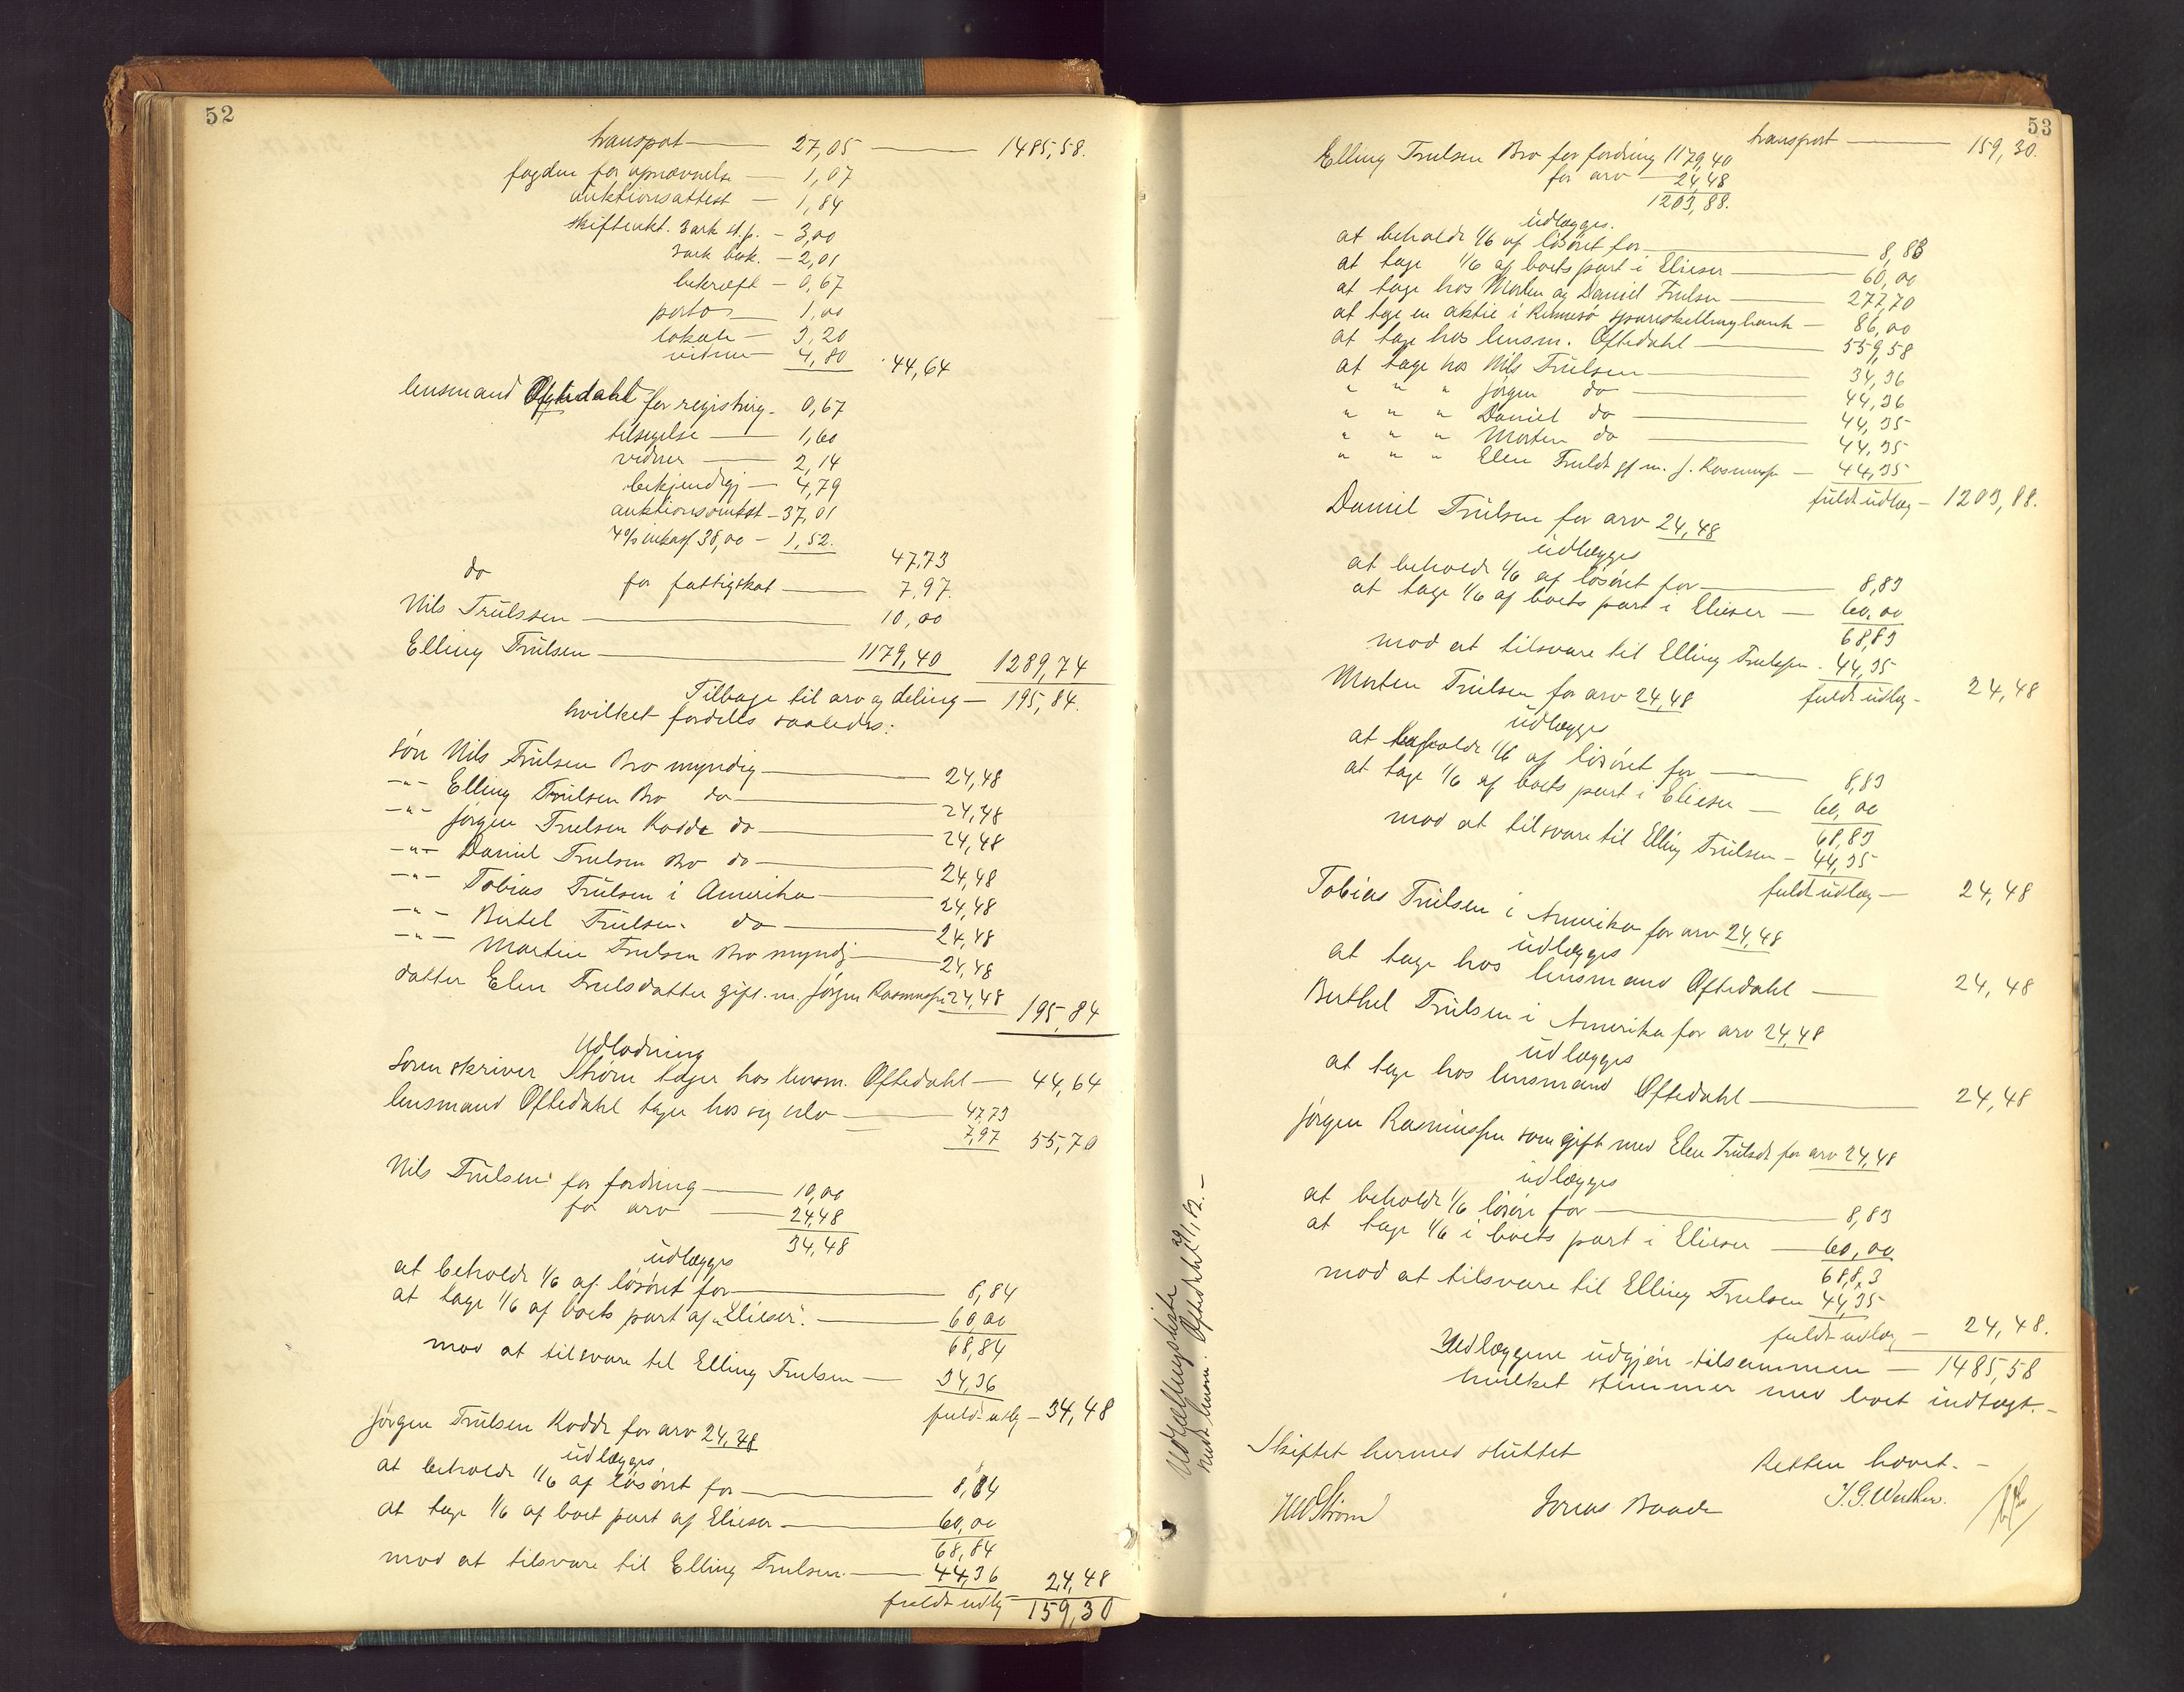 52
transport 27,05 1485,58.
fogden for opnævnelse 1,07
auktionsattest 1,84
skifteakt. 3 ark st.p. 3,00
3 ark besk. 2,01
bekræft 0,67
porto 1,00
lokale 3,20
vidner 4,80 44,64
lensmand Oftedahl for registrirg. 0,67
tilsigelse 1,60
vidner 2,14
bekjendtgj 4,79
auktionsomkost 37,01
4% inkass 38,00 1,52.
47,73
do for fattigskat 7,97.
Nils Trulssen 10,00
Elling Trulsen 1179,40 1289,74
Tilbage til arv og deling 195,84.
hvilket fordeles saaledes:
søn Nils Trulsen Bro myndig 24,48
-"- Elling Trulsen Bro do 24,48
-"- Jørgen Trulsen Kodde do 24,48
-"- Daniel Trulsen Bro do 24,48
-"- Tobias Trulsen i Amerika 24,48
-"- Bertel Trulsen do 24,48
-"- Martin Trulsen Bro myndig 24,48
datter Elen Trulsdatter gift. m. Jørgen Rasmussen 24,48 195,84
Udlodning
Sorenskriver Strøm tager hos lensm. Oftedahl 44,64
lensmand Oftedahl tager hos sig selv 47,73
7,97 55,70
Nils Trulsen for fordring 10,00
for arv 24,48
34,48
udlægges
at beholde 1/6 af løsøret for 8,84
at tage 1/6 af boets part af "Elieser". 60,00
68,84
mod at tilsvare til Elling Trulsen 34,36
fuldt udlæg 34,48
Jørgen Trulsen Kodde for arv 24,48
udlægges
at beholde 1/6 af løsøret for 8,84
at tage 1/6 af boet part af Elieser 60,00
68,84
mod at tilsvare til Elling Trulsen 44,36 24,48
fuldt udlæg 159,30
53
transport 159,30.
Elling Trulsen Bro for fordring 1179,40
for arv 24,48
1203,88.
udlægges.
at beholde 1/6 af løsøret for 8,83
at tage 1/6 af boets part i Elieser 60,00
at tage hos Morten og Daniel Trulsen 277,70
at tage en aktie i Rennesø spareskillingbank 86,00
at tage hos lensm. Oftedahl 559,58
at tage hos Nils Trulsen 34,36
" " " Jørgen do 44,36
" " " Daniel do 44,35
" " " Morten do 44,35
" " " Elen Trulsdr gf m. J. Rasmussen 44,35
fuldt udlæg 1203,88.
Daniel Trulsen for arv 24,48
udlægges
at beholde 1/6 af løsøret for 8,83
at tage 1/6 af boets part i Elieser 60,00
68,83
mod at tilsvare til Elling Trulssen. 44,35
fuldt udlæg 24,48
Morten Trulsen for arv 24,48
udlægges
at beholde 1/6 af løsøret for 8,83
at tage 1/6 af boets part i Elieser 60,00
68,83
mod at tilsvare til Elling Trulsen 44,35
fuldt udlæg 24,48
Tobias Trulsen i Amerika for arv 24,48
udlægges
at tage hos lensmand Oftedahl 24,48
Berthel Trulsen i Amerika for arv 24,48
udlægges
at tage hos lensmand Oftedahl 24,48
Jørgen Rasmussen som gift med Elen Trulsdr for arv 24,48
udlægges
at beholde 1/6 løsøre for 8,83
at tage 1/6 i boets part i Elieser 60,00
68,83
mod at tilsvare til Elling Trulsen 44,35
fuldt udlæg 24,48.
Udlæggene udgjør tilsammen 1485,58
hvilket stemmer med boets indtægt.
Skiftet hermed sluttet
Retten hævet.
Strøm
Jonas Baade
Udbetalingsliste
sendt lensm. Oftedahl